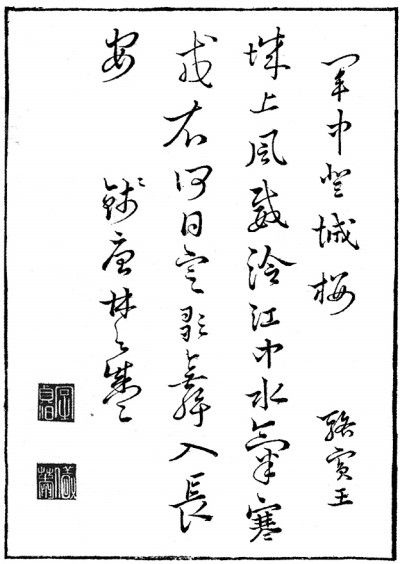 軍中登城樓
駱賓王
城上風威冷江中水氣寒
戎衣何日定歌舞入長
安
錢唐林之盛